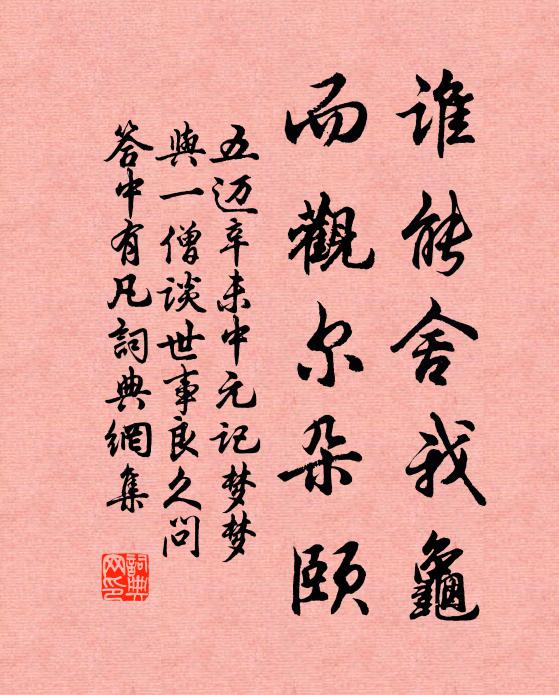 谁能舍我龜
而觀尔朵頤
五迈辛未中元记梦梦
與一僧谈世事良久问
答中有凡詞典網集
詞典网印